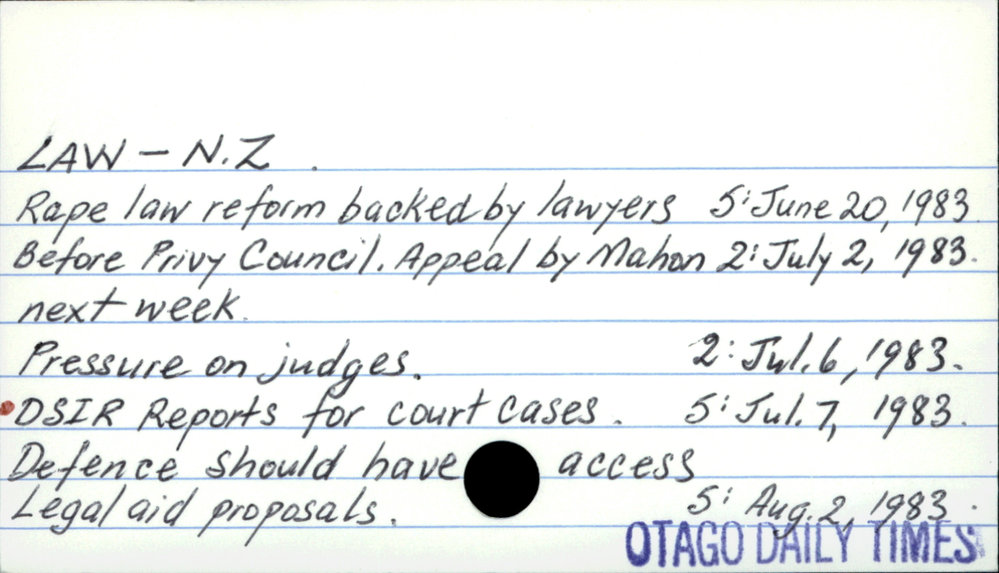 LAW - N.Z.
Rape law reform backed by lawyers 5: June 20, 1983.
Before Privy Council. Appeal by Mahon 2: July 2, 1983.
next week.
Pressure on judges. 2: Jul. 6, 1983.
DSIR Reports for court cases. 5: Jul. 7, 1983.
Defence should have access
Legal aid proposals. 5: Aug. 2, 1983.
OTAGO DAILY TIMES